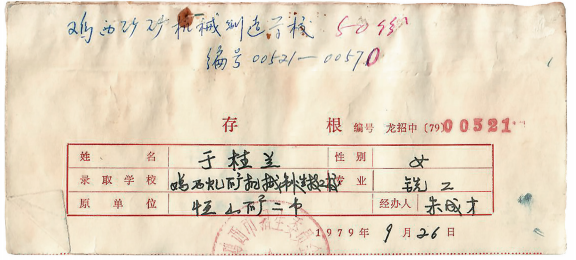 鸡西矿矿机械制造学校 50名
编号00521—00570
存 根 编号 龙招中(79)00521
姓名 于桂兰 性别 女
录取学校 鸡西矿矿机械制造学校 专业 铣工
原单位 恒山矿二中 经办人 朱成才
1979年9月26日